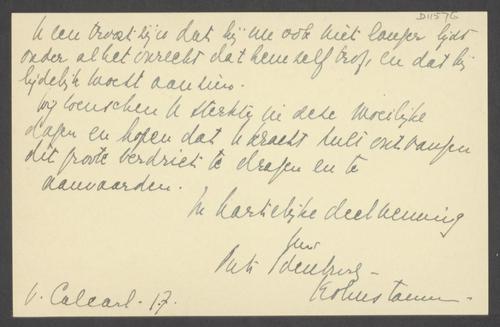 D1157G
U een troost zijn dat hij nu ook niet langer lijdt
onder al het onrecht dat hemself trof, en dat hij
lijdelijk moest aanzien.
Wij wenschen U sterkte in deze moeilijke
dagen en hopen dat U kracht zult ontvangen
dit groote verdriet te dragen en te
aanvaarden.
In hartelijke deelneming
Idenburg-
Kohnstamm-
v. Calcarl. 17.